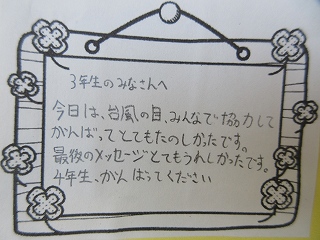 3年生のみなさんへ
今日は、台風の目、みんなで協力して
がんばってとてもたのしかったです。
最後のメッセージとてもうれしかったです。
4年生、がんばってください